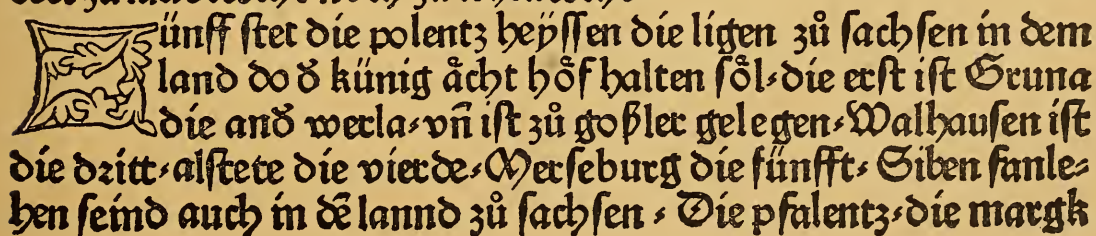 Fünff stet die polentz heÿssen die ligen zů sachsen in dem
land do ð künig åcht hôf halten sôl⸗die erst ist Gruna
die anð werla⸗vñ ist zů goßler gelegen⸗Walhausen ist
die dritt⸗alstete die vierde⸗Merseburg die fünfft⸗Siben fanle⸗
hen seind auch in dē lannd zů sachsen⸗Die pfalentz⸗die margk